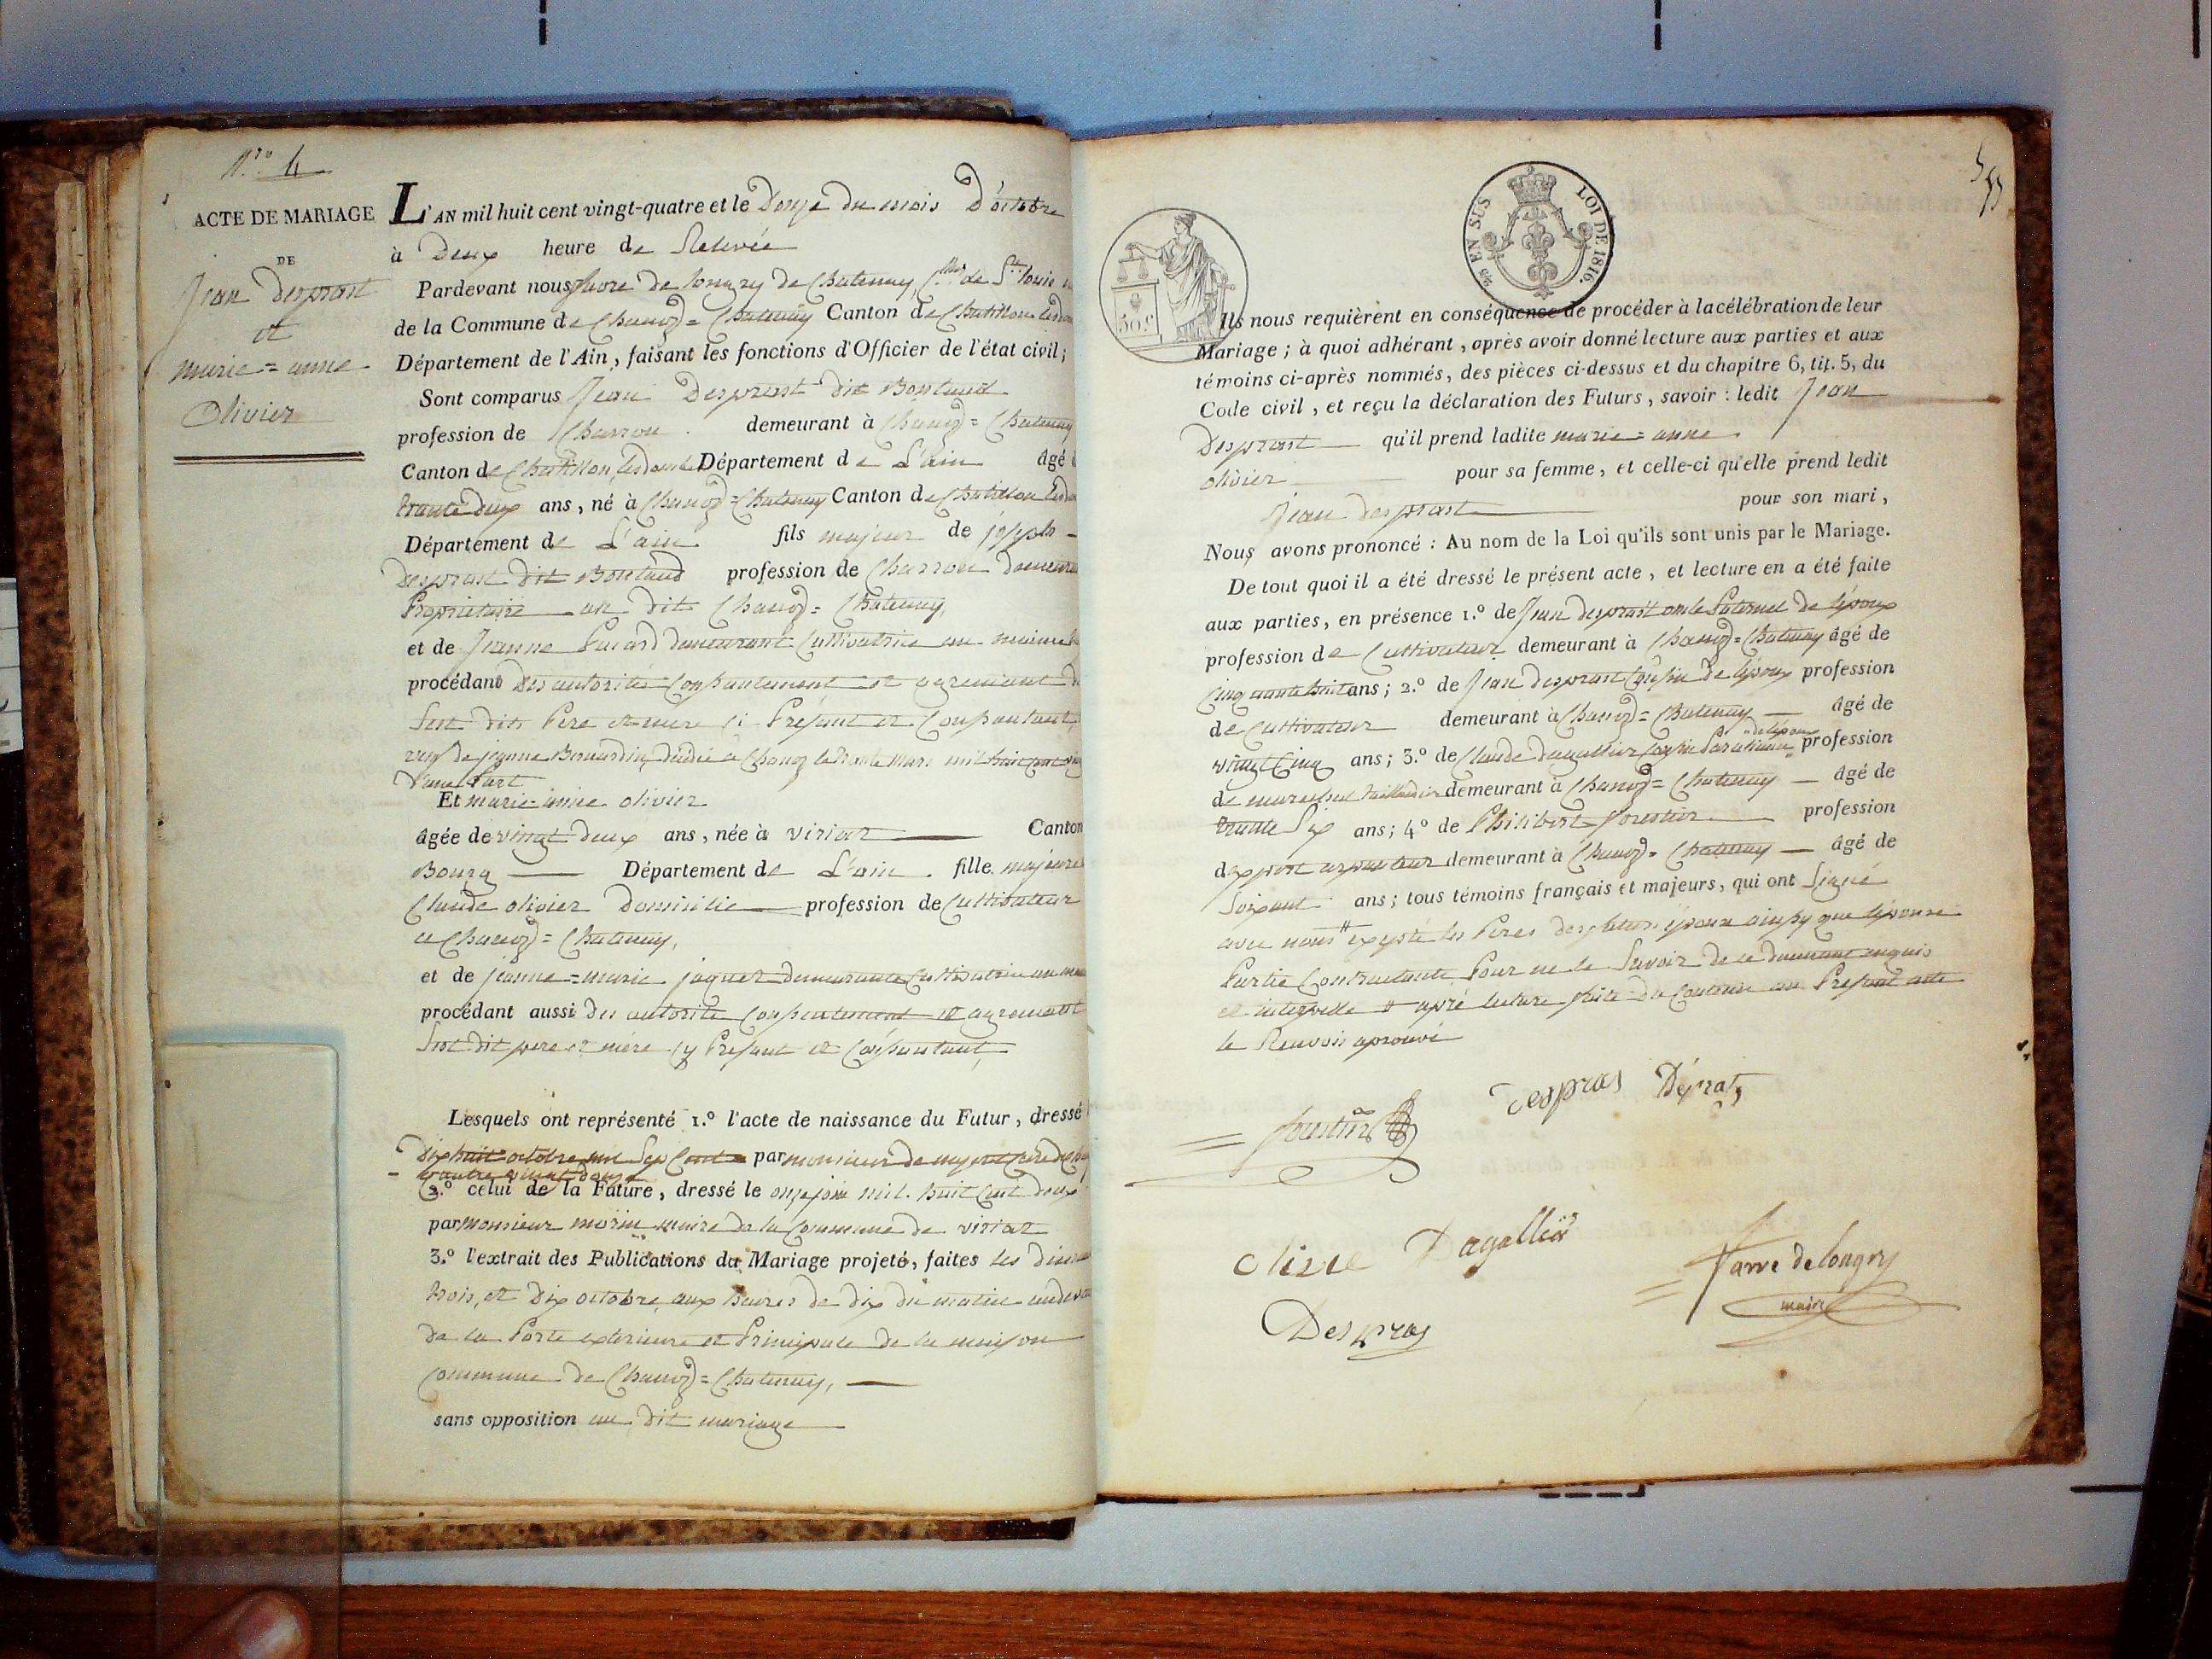 N.ro 4
ACTE DE MARIAGE
DE
Jean Desprast
et
marie=anne
Olivier
L'AN mil huit cent vingt-quatre et le Douze du mois D'octobre
à Deux heure de Relevée
Pardevant nous favre de longry de Chatenay de St louis
de la Commune de Chanoz=Chatenay Canton de Chatillon
Département de l'Ain, faisant les fonctions d'Officier de l'état civil;
Sont comparus Jean Desprast dit Bontaud
profession de Charron demeurant à Chanoz=Chatenay
Canton de Chatillon Département de L'ain âgé
trante deux ans, né à Chanoz=Chatenay Canton de Chatillon
Département de L'ain fils majeur de joseph
Desprast dit Bontaud profession de Charron
Propriétaire au dit Chanoz=Chatenay,
et de Jeanne demeurant Cultivatrice au maime
procédant Des autorités Consantement et agremant
Sest dits Pere et mere ci Présant et Consantant,
de jeanne Bernardin, décédée à Chanoz le mars mil huit cent
D'une Part
Et marie=anne olivier
âgée de vingt deux ans, née à viriat Canton
Bourg Département de L'ain fille majeure
Claude olivier Domicilié profession de Cultivateur
a Chanoz=Chatenay,
et de jeanne=marie demeurante Cultivatrice au
procédant aussi des autorité Consentement et agremant
Sest dit pere et mére cy Présant et Consantant,
Lesquels ont représenté 1.º l'acte de naissance du Futur, dressé
Dix huit octobre mil Sept Cent par monsieur de
quatre vingt douze
2.º celui de la Future, dressé le onze mil huit Cent deux
par Monsieur morin maire de la Commune de viriat
3.º l'extrait des Publications du Mariage projeté, faites les
trois, et Dix octobre aux heures de dix du matin
de la Porte exterieure et Principale de la maison
Commune de Chanoz=Chatenay,
sans opposition au dit mariage
EN SUS LOI DE 1816.
50 c
Ils nous requièrent en conséquence de procéder à la célébration de leur
Mariage; à quoi adhérant, après avoir donné lecture aux parties et aux
témoins ci-après nommés, des pièces ci-dessus et du chapitre 6, tit. 5, du
Code civil, et reçu la déclaration des Futurs, savoir: ledit Jean
Desprast qu'il prend ladite marie=anne
olivier pour sa femme, et celle-ci qu'elle prend ledit
Jean desprast pour son mari,
Nous avons prononcé: Au nom de la Loi qu'ils sont unis par le Mariage.
De tout quoi il a été dressé le présent acte, et lecture en a été faite
aux parties, en présence 1.º de Jean desprast oncle Paternel de lépoux
profession de Cultivateur demeurant à Chanoz=Chatenay âgé de
Cinquante huit ans; 2.º de Jean desprast Cousin de lépoux profession
de Cultivateur demeurant à Chanoz=Chatenay âgé de
vingt Cinq ans; 3.º de Claude dagallier de lépoux profession
de marechal taillandier demeurant à Chanoz=Chatenay âgé de
trante Six ans; 4º de Philibert forestier profession
dexpert arpanteur demeurant à Chanoz=Chatenay âgé de
Soixante ans; tous témoins français et majeurs, qui ont Signé
avec nous excepté les Peres époux ainsy que lépouse
Partie Contractante Pour ne le Savoir de ce duemant enquis
et interpellé apré lecture faite du Contenu au Présant acte
le Renvois aprouvé
despras Déprat
Olivie Dagallier
favre de longry
maire
Despras